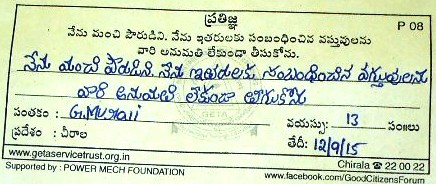 ప్రతిజ్ఞ
P 08
నేను మంచి పౌరుడిని. నేను ఇతరులకు సంబంధించిన వస్తువులను
వారి అనుమతి లేకుండా తీసుకోను.
నేను మంచి పౌరుడిని. నేను ఇతరులకు సంబంధించిన వస్తువులను
వారి అనుమతి లేకుండా తీసుకోను
సంతకం : G.Murali వయస్సు: 13 సం॥లు
ప్రదేశం : చీరాల తేదీ: 12/9/15
www.getaservicetrust.org.in Chirala ☎ 22 00 22
Supported by : POWER MECH FOUNDATION www.facebook.com/GoodCitizensForum